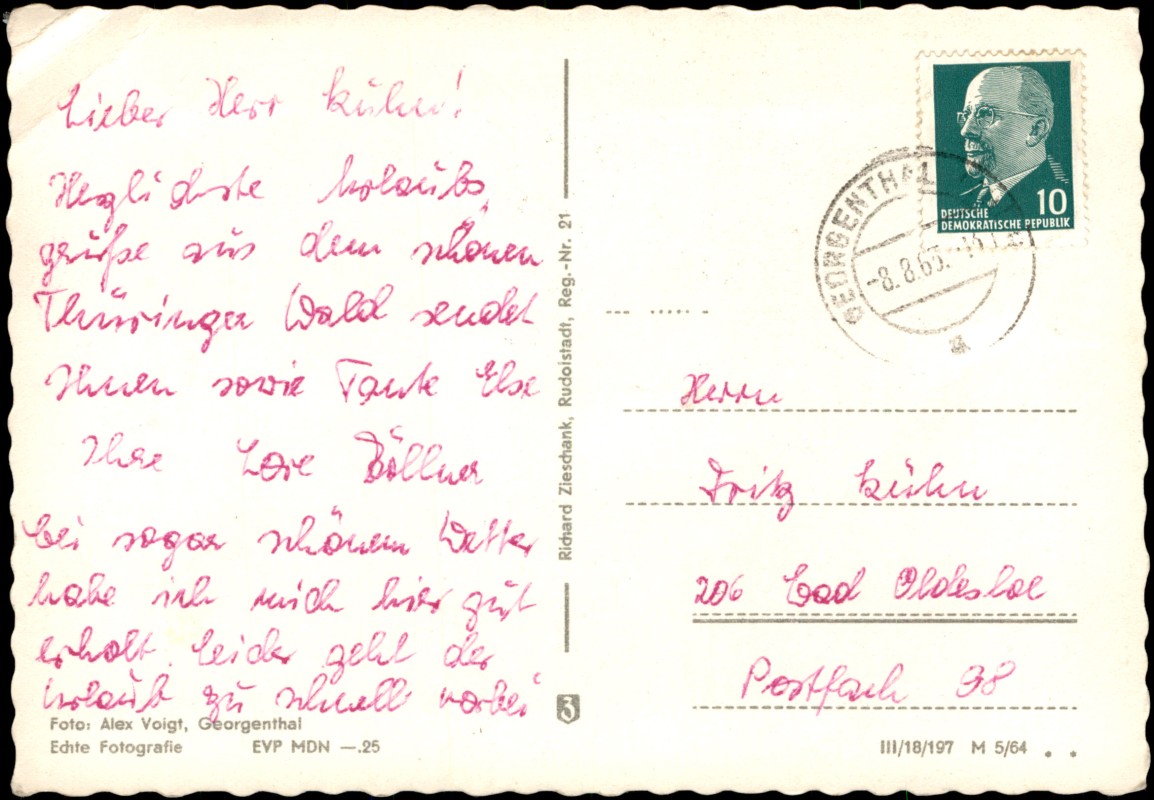 Lieber Herr Kühn!
Herzlichste Urlaubs
grüße aus dem schönen
Thüringer Wald sendet
Ihnen sowie Tante Else
Ihre Lore Böllner
bei sogar schönem Wetter
habe ich mich hier gut
erholt. Leider geht der
Urlaub zu schnell vorbei
Foto: Alex Voigt, Georgenthal
Echte Fotografie EVP MDN —.25
Richard Zieschank, Rudolstadt, Reg.-Nr. 21
3
10
DEUTSCHE
DEMOKRATISCHE REPUBLIK
GEORGENTHAL
-8.8.65.-
a
Herrn
Fritz Kühn
206 Bad Oldesloe
Postfach 98
III/18/197 M 5/64